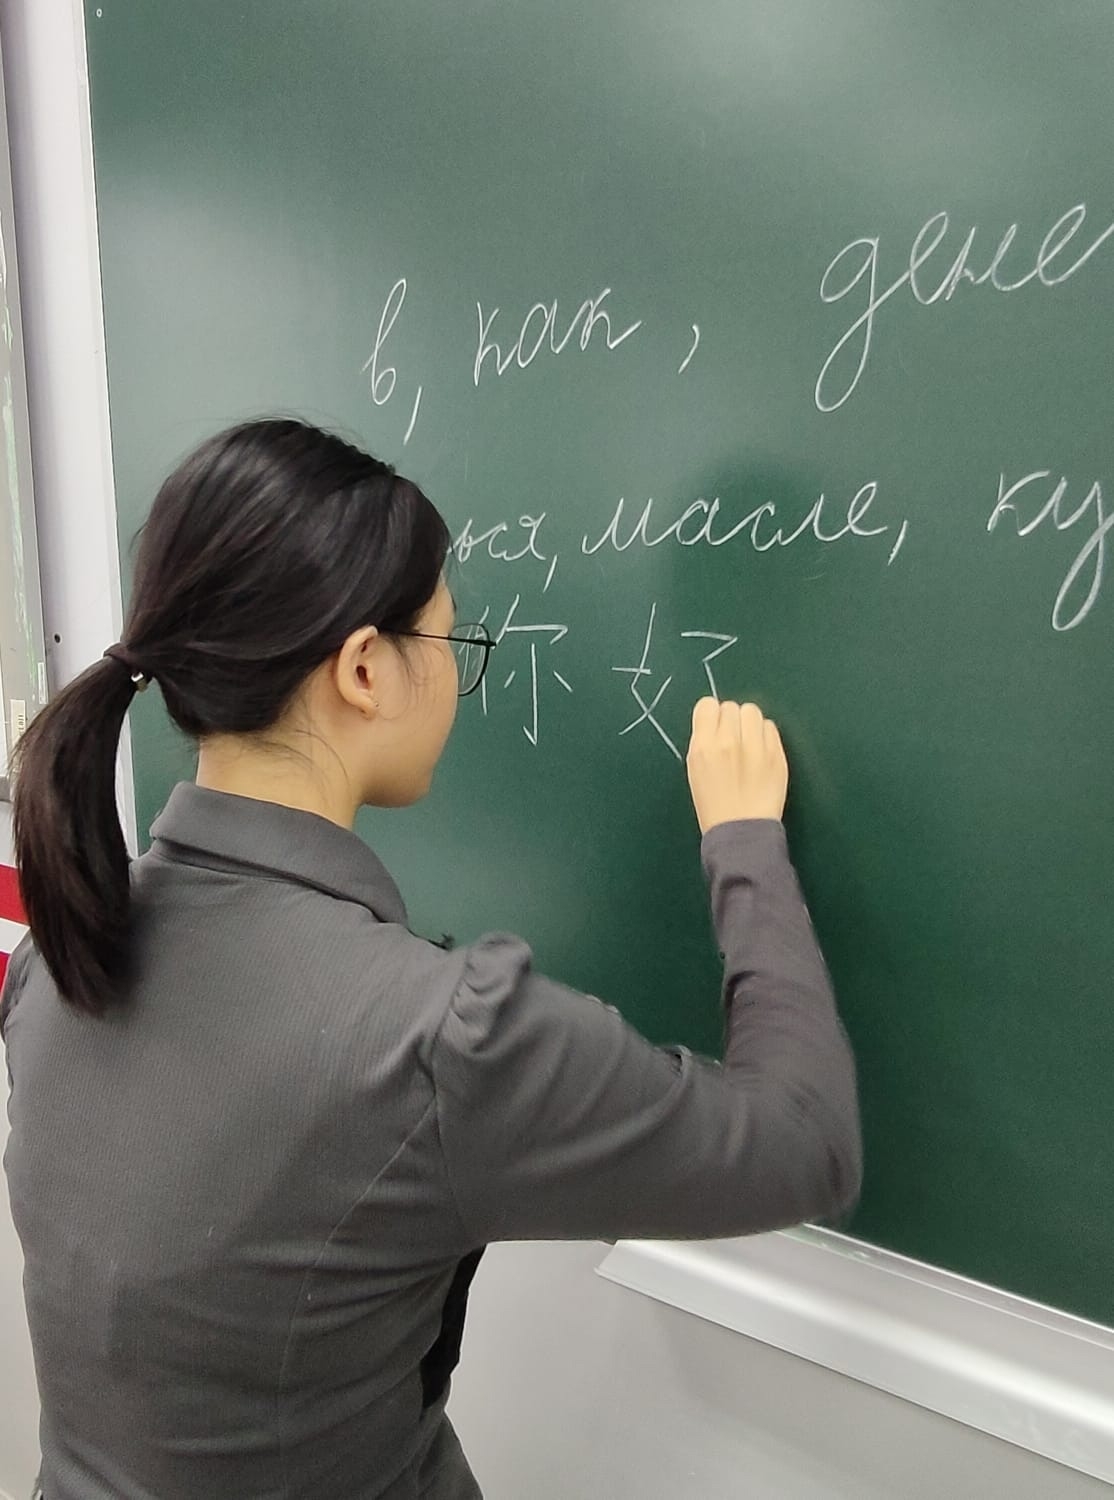 в, как, дене
ься, масле, ку
你好